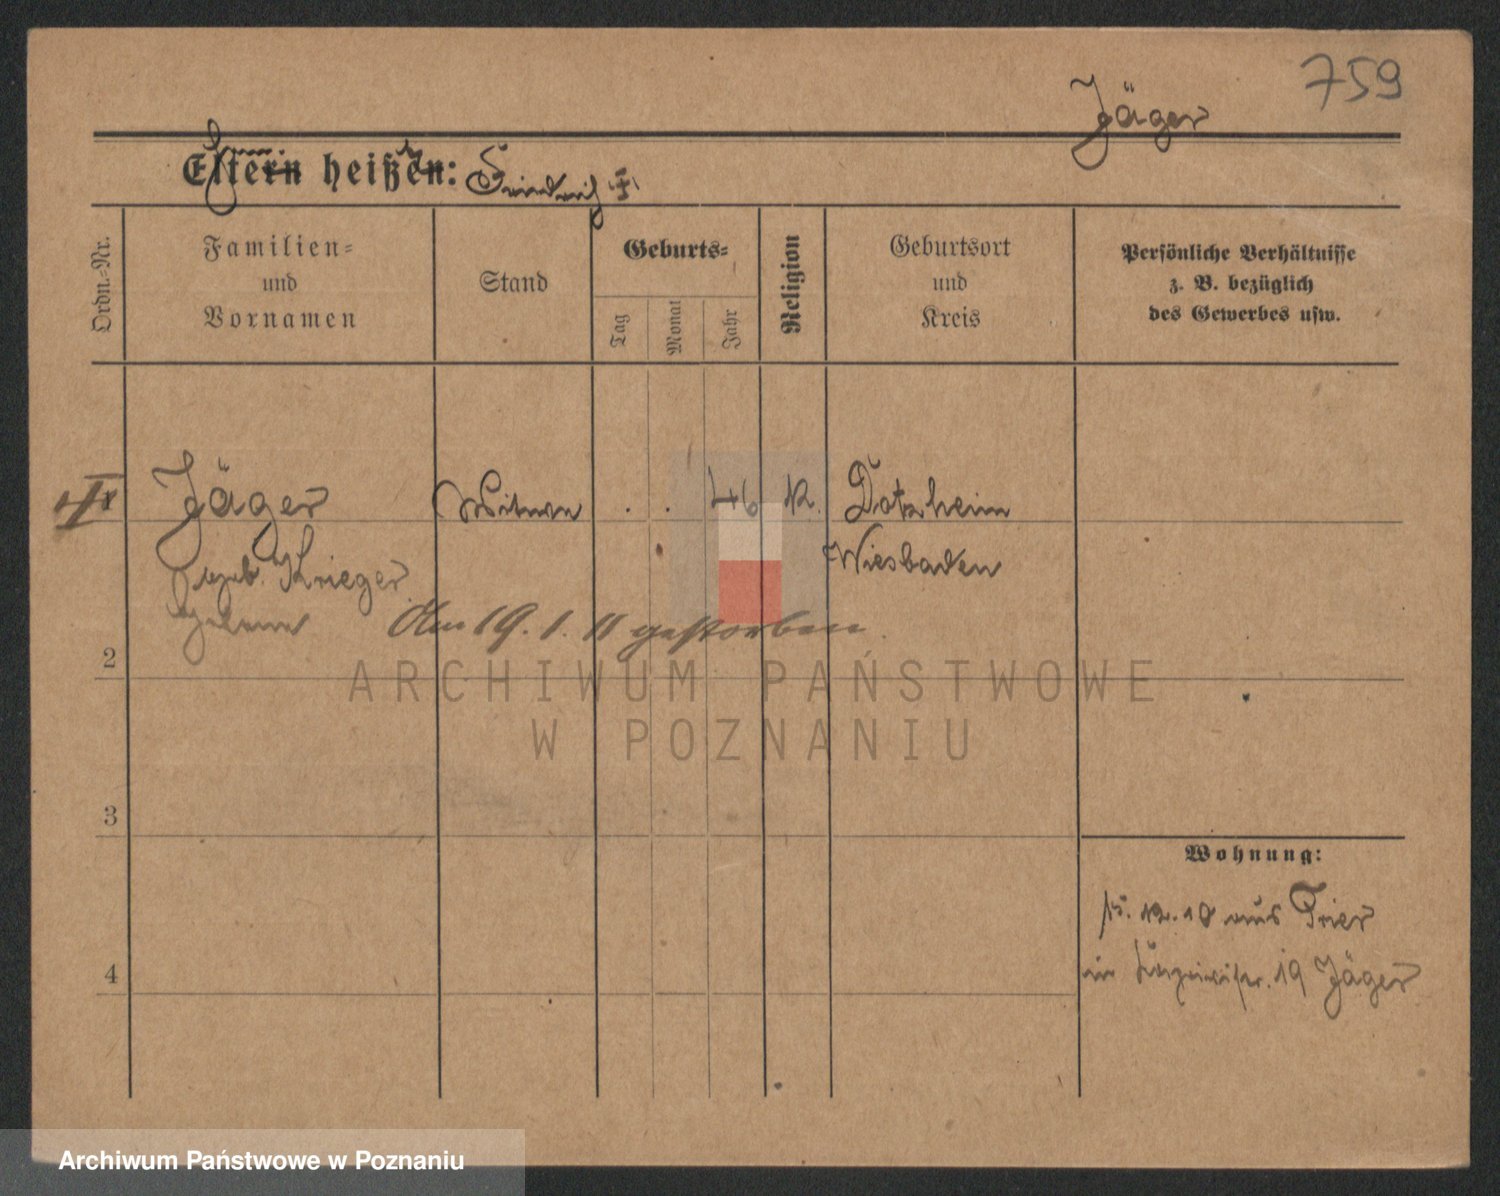 759
Jäger
Eltern heißen: Friedrich ‡
Ordn.-Nr.
Familien-
und
Vornamen
Stand
Geburts-
Tag
Monat
Jahr
Religion
Geburtsort
und
Kreis
Persönliche Verhältnisse
z. B. bezüglich
des Gewerbes usw.
1
Jäger
geb. Krieger
Helene
Witwe
. . 46
K.
Dotzheim
Wiesbaden
Am 19. 1. 11 gestorben.
2
3
4
ARCHIWUM PAŃSTWOWE
W POZNANIU
Wohnung:
15. 12. 10 aus Trier
19 Jäger
Archiwum Państwowe w Poznaniu